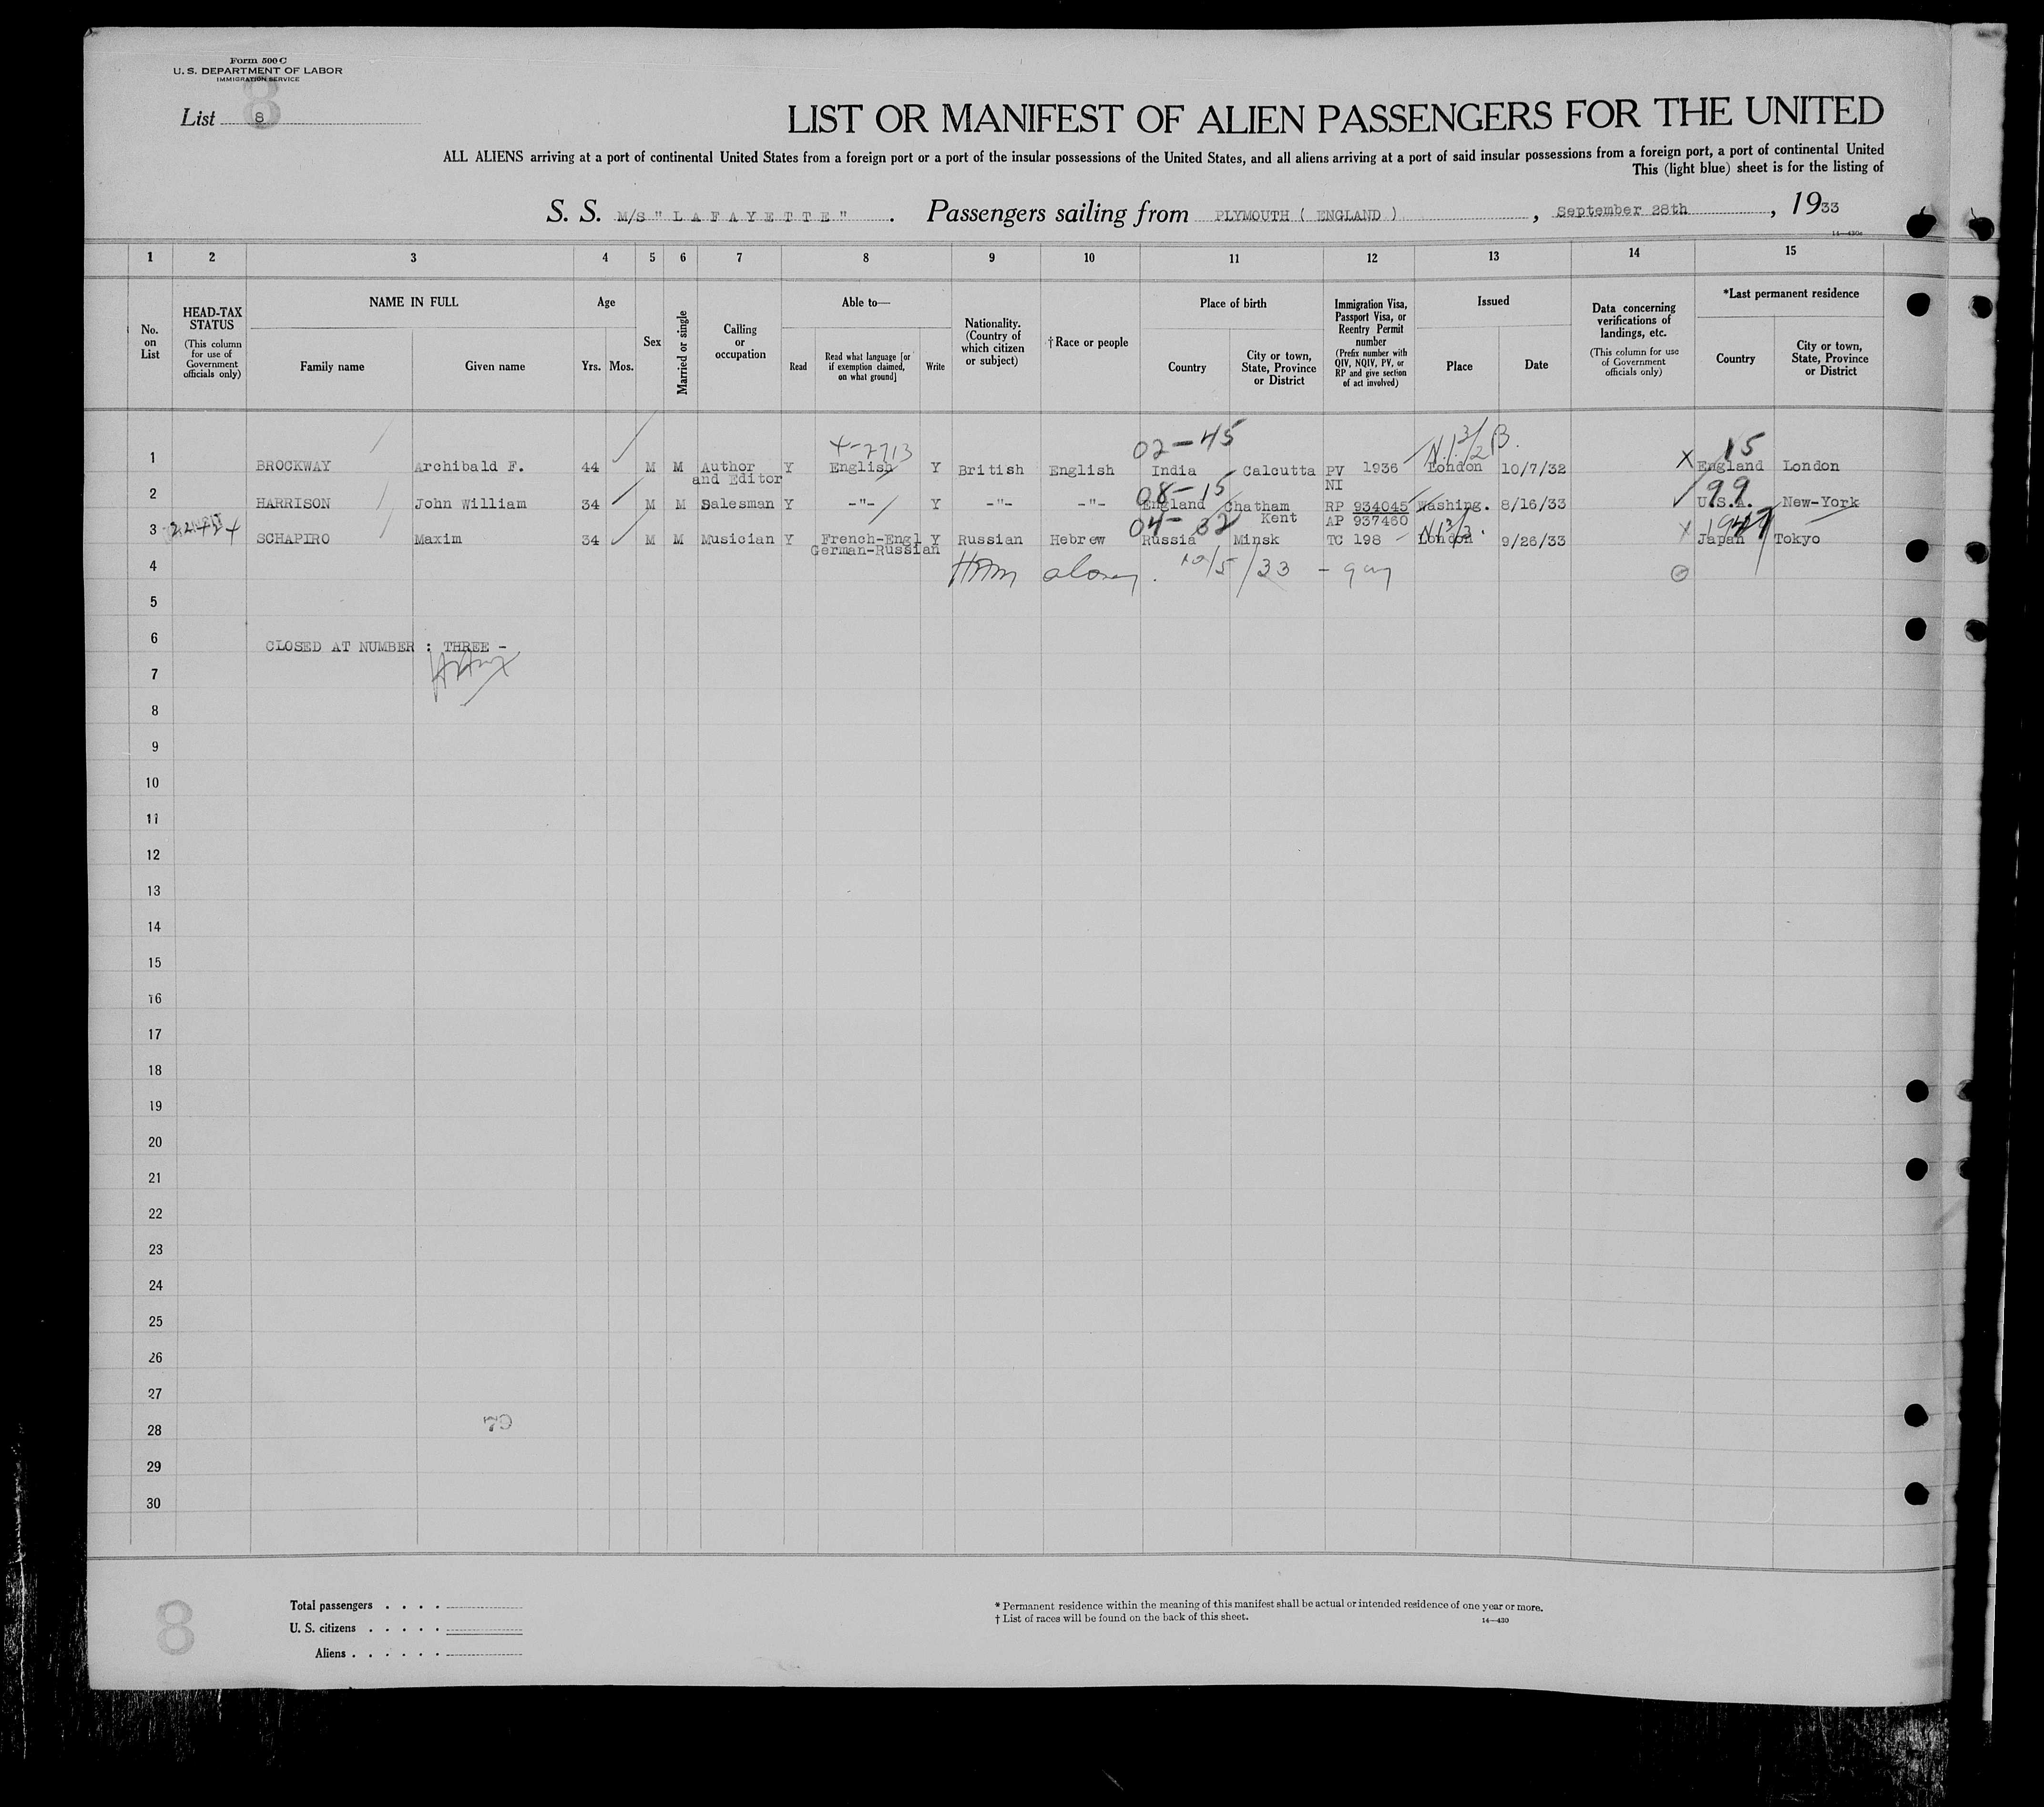 Form 500 C
U. S. DEPARTMENT OF LABOR
IMMIGRATION SERVICE
List 8
8
LIST OR MANIFEST OF ALIEN PASSENGERS FOR THE UNITED
ALL ALIENS arriving at a port of continental United States from a foreign port or a port of the insular possessions of the United States, and all aliens arriving at a port of said insular possessions from a foreign port, a port of continental United
This (light blue) sheet is for the listing of
S. S. M/S " L A F A Y E T T E " . Passengers sailing from PLYMOUTH ( ENGLAND ) , September 28th , 1933
14—430c
1 2 3 4 5 6 7 8 9 10 11 12 13 14 15
No. on List
HEAD-TAX STATUS (This column for use of Government officials only)
NAME IN FULL
Family name Given name
Age
Yrs. Mos.
Sex
Married or single
Calling or occupation
Able to—
Read Read what language [or if exemption claimed, on what ground] Write
Nationality. (Country of which citizen or subject)
† Race or people
Place of birth
Country City or town, State, Province or District
Immigration Visa, Passport Visa, or Reentry Permit number (Prefix number with QIV, NQIV, PV, or RP and give section of act involved)
Issued
Place Date
Data concerning verifications of landings, etc. (This column for use of Government officials only)
*Last permanent residence
Country City or town, State, Province or District
4-2713 02-45 15
1 BROCKWAY Archibald F. 44 M M Author and Editor Y English Y British English India Calcutta PV 1936 NI London 10/7/32 X England London
08-15 99
2 HARRISON John William 34 M M Salesman Y -"- Y -"- -"- England Chatham Kent RP 934045 AP 937460 Washing. 8/16/33 U.S.A. New-York
04-32
3 SCHAPIRO Maxim 34 M M Musician Y French-Engl German-Russian Y Russian Hebrew Russia Minsk TC 198 London 9/26/33 X Japan Tokyo
4 10/5/33
5
6 CLOSED AT NUMBER : THREE -
7
8
9
10
11
12
13
14
15
16
17
18
19
20
21
22
23
24
25
26
27
28
79
29
30
8
Total passengers . . . .
U. S. citizens . . . . .
Aliens . . . . . .
* Permanent residence within the meaning of this manifest shall be actual or intended residence of one year or more.
† List of races will be found on the back of this sheet.
14—430